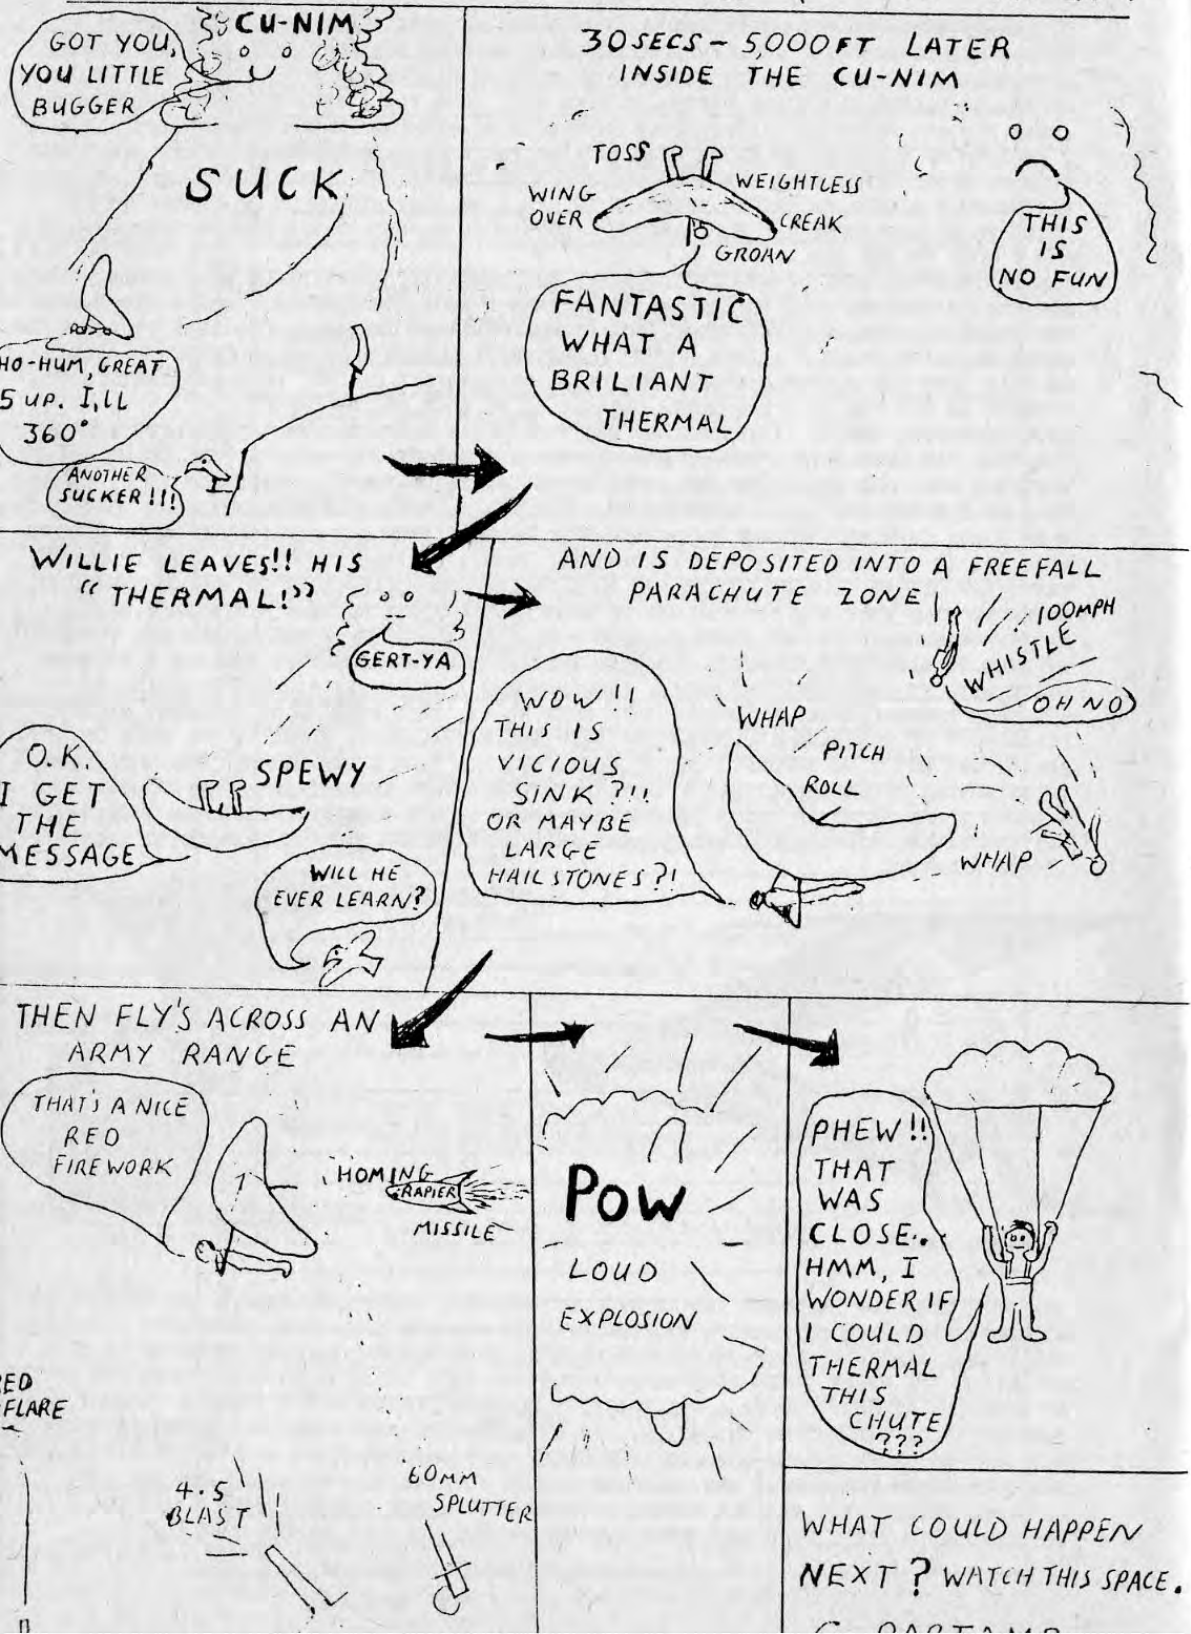 CU-NIM
GOT YOU,
YOU LITTLE
BUGGER
SUCK
HO-HUM, GREAT
5 UP. I,LL
360°
ANOTHER
SUCKER!!!
30SECS - 5,000FT LATER
INSIDE THE CU-NIM
TOSS
WEIGHTLESS
WING
OVER
CREAK
GROAN
THIS
IS
NO FUN
FANTASTIC
WHAT A
BRILIANT
THERMAL
WILLIE LEAVES!! HIS
"THERMAL!"
GERT-YA
O.K.
I GET
THE
MESSAGE
SPEWY
WILL HE
EVER LEARN?
AND IS DEPOSITED INTO A FREEFALL
PARACHUTE ZONE
100MPH
WHISTLE
OH NO
WOW!!
THIS IS
VICIOUS
SINK?!!
OR MAYBE
LARGE
HAILSTONES?!
WHAP
PITCH
ROLL
WHAP
THEN FLY'S ACROSS AN
ARMY RANGE
THAT'S A NICE
RED
FIREWORK
HOMING
RAPIER
MISSILE
RED
FLARE
4.5
BLAST
60MM
SPLUTTER
POW
LOUD
EXPLOSION
PHEW!!
THAT
WAS
CLOSE..
HMM, I
WONDER IF
I COULD
THERMAL
THIS
CHUTE
???
WHAT COULD HAPPEN
NEXT? WATCH THIS SPACE.